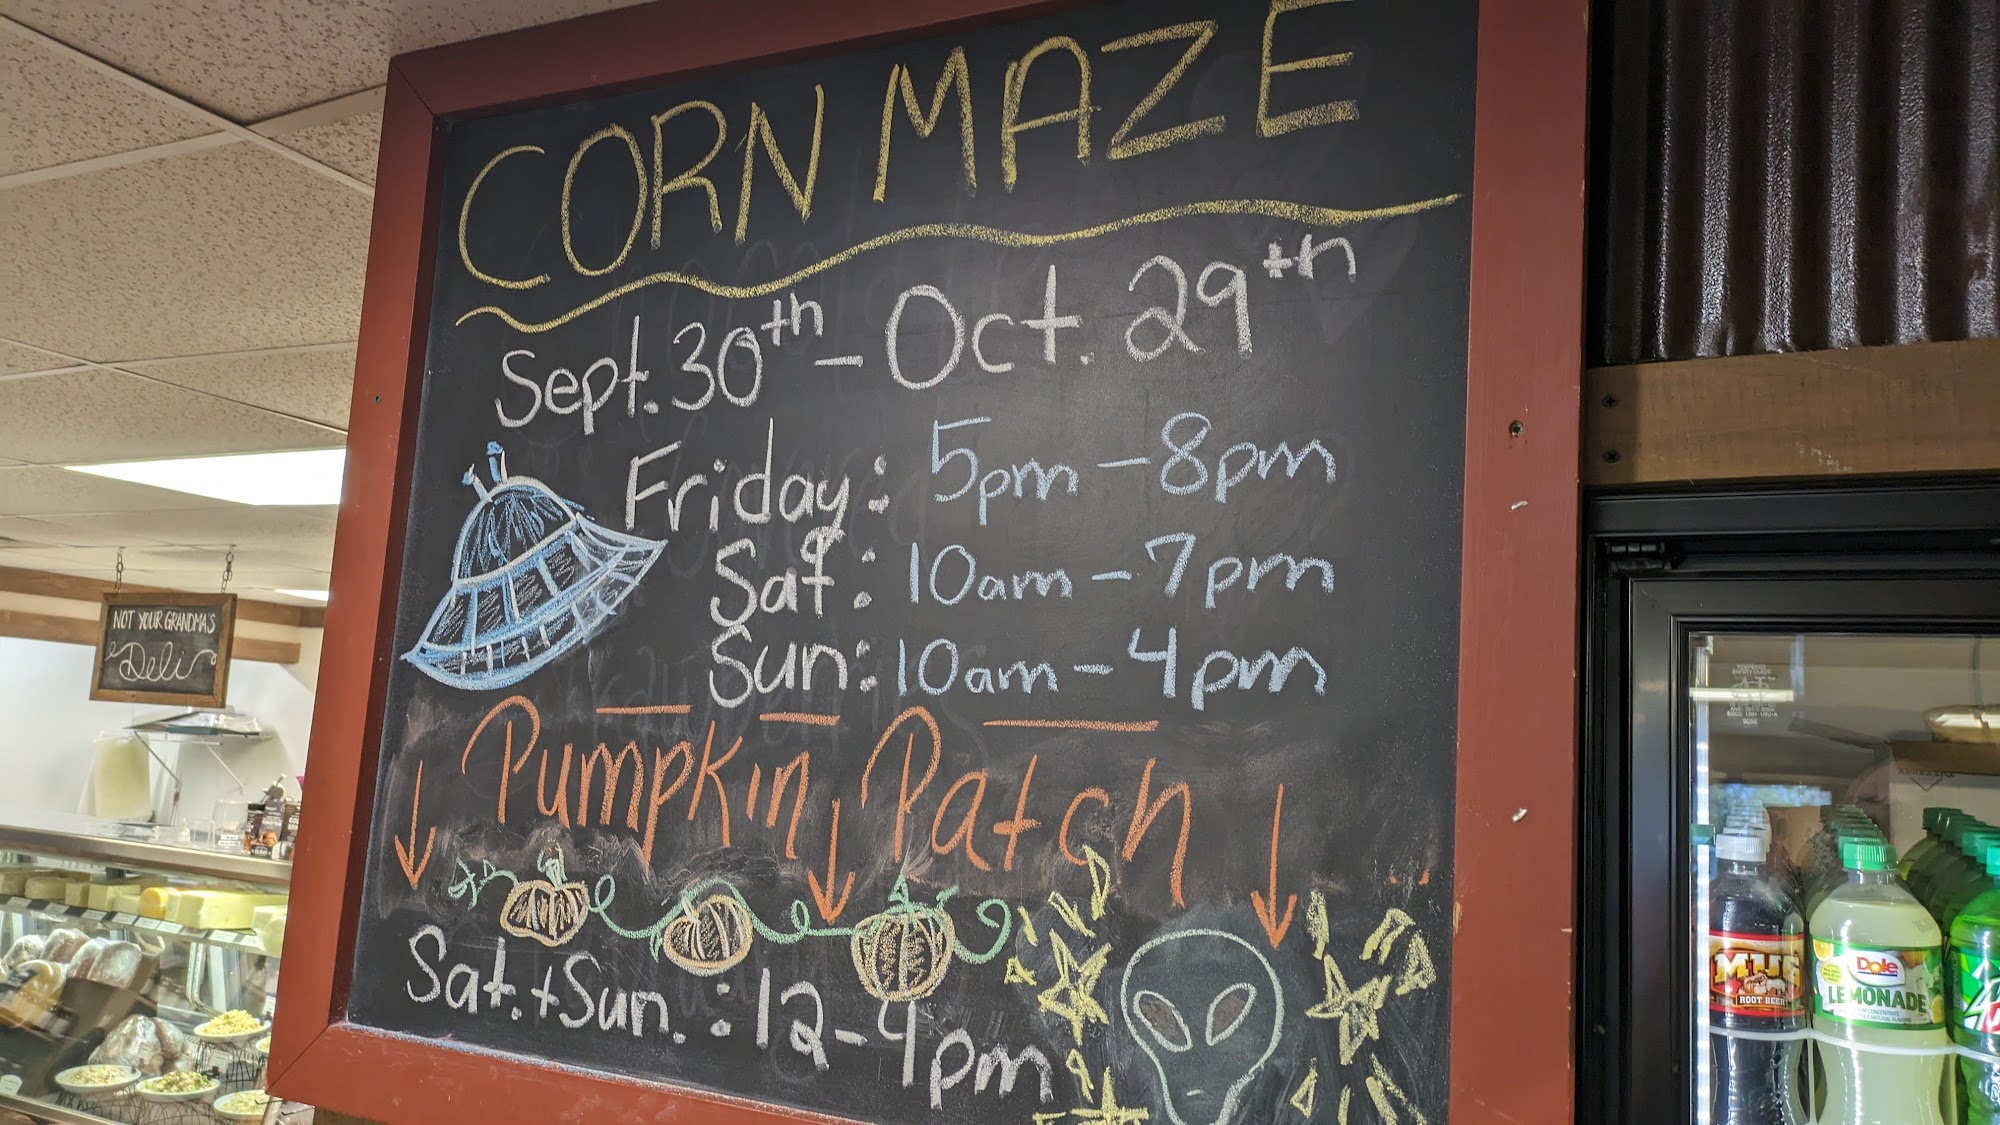 CORN MAZE
Sept. 30th - Oct. 29th
Friday: 5pm - 8pm
Sat: 10am - 7pm
Sun: 10am - 4pm
Pumpkin Patch
Sat. + Sun. : 12 - 4pm
NOT YOUR GRANDMA'S
Deli
MUG
ROOT BEER
Dole
LEMONADE